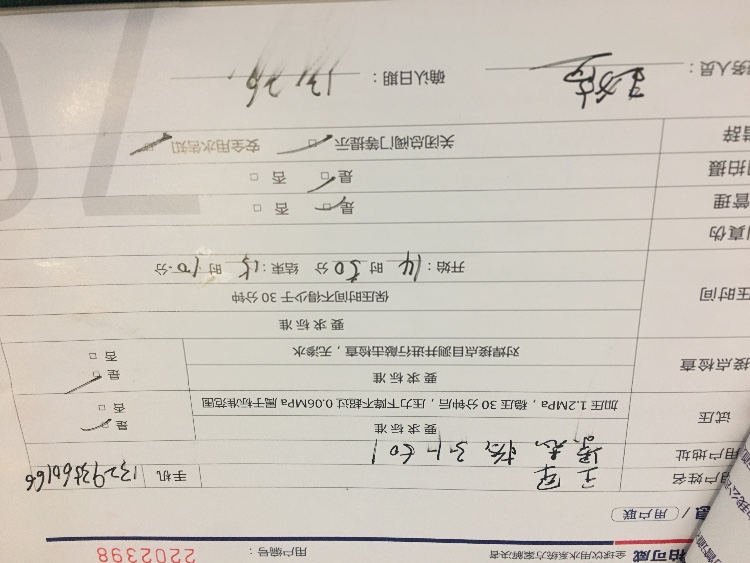 柏可威 全球饮用水系统方案解决者 用户编号: 2202398
息 / 用户联
用户姓名 王军 手机
用户地址
试压 要求标准 是 否
加压1.2MPa，稳压30分钟后，压力下降不超过0.06MPa属于标准范围
接点检查 要求标准 是 否
对焊接点目测并进行敲击检查，无渗水
压时间 要求标准
保压时间不得少于30分钟
开始：14时30分 结束：15时10分
真伪
管理 是 否
拍摄 是 否
辞 关闭总阀门等提示 安全用水告知
务人员： 确认日期：